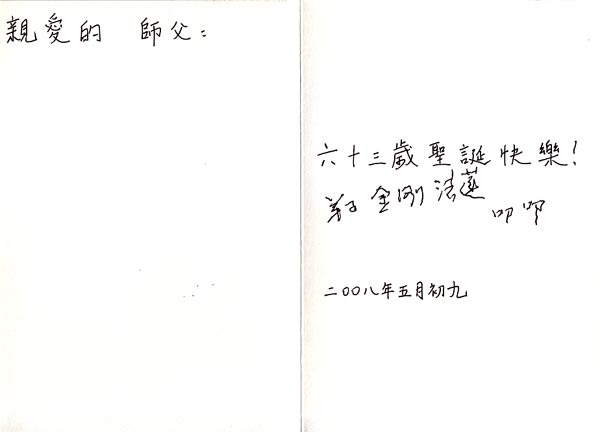 親愛的 師父：
六十三歲聖誕快樂！
弟子 金剛法蓮
叩叩
二〇〇八年五月初九